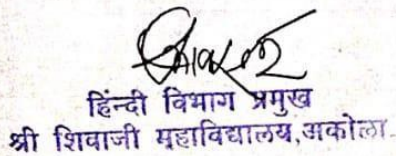 हिंन्दी विभाग प्रमुख
श्री शिवाजी महाविद्यालय,अकोला.